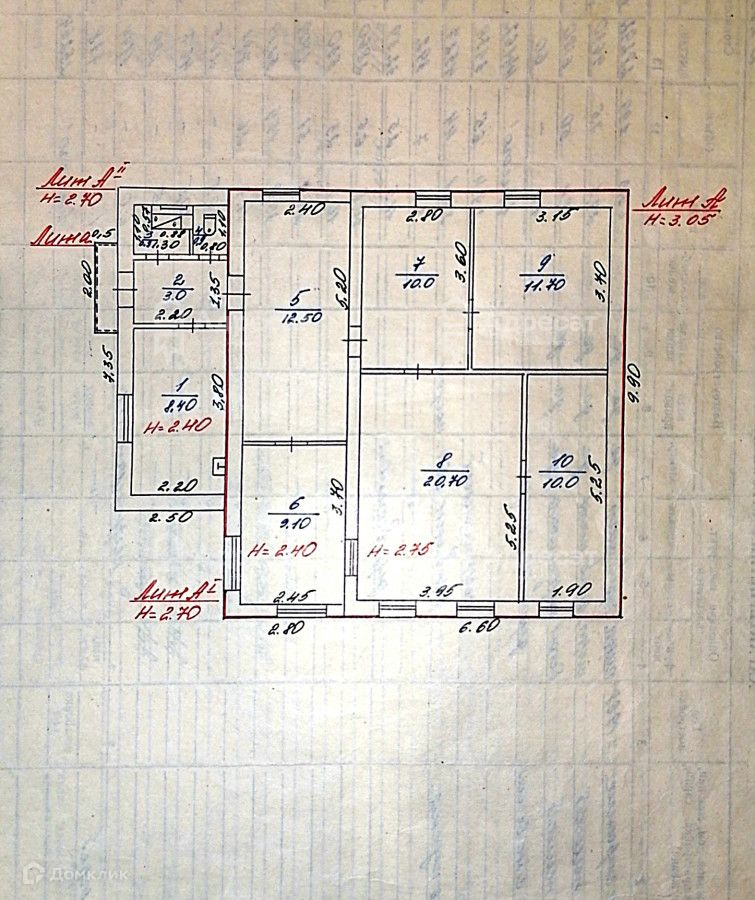 Лит АII
H=2.70
Лит а
0,5
2.00
7.35
1.10
0.57
3
0.88
1.30
4
1.10
0.80
2
3.0
2.20
1.35
1
8.40
H=2.40
3.80
2.20
2.50
2.40
5
12.50
5.20
6
9.10
3.70
H=2.40
2.45
2.80
Лит АI
H=2.70
2.80
7
10.0
3.60
3.15
9
11.70
3.70
Лит А
H=3.05
9.90
8
20.70
H=2.75
5.25
3.95
10
10.0
5.25
1.90
6.60
Домклик